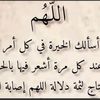 اللّهُم
أسألك الخيرة في كل أمر
عند كل مرة أشعر فيها بال
ثمة دلالة اللهم إصابة